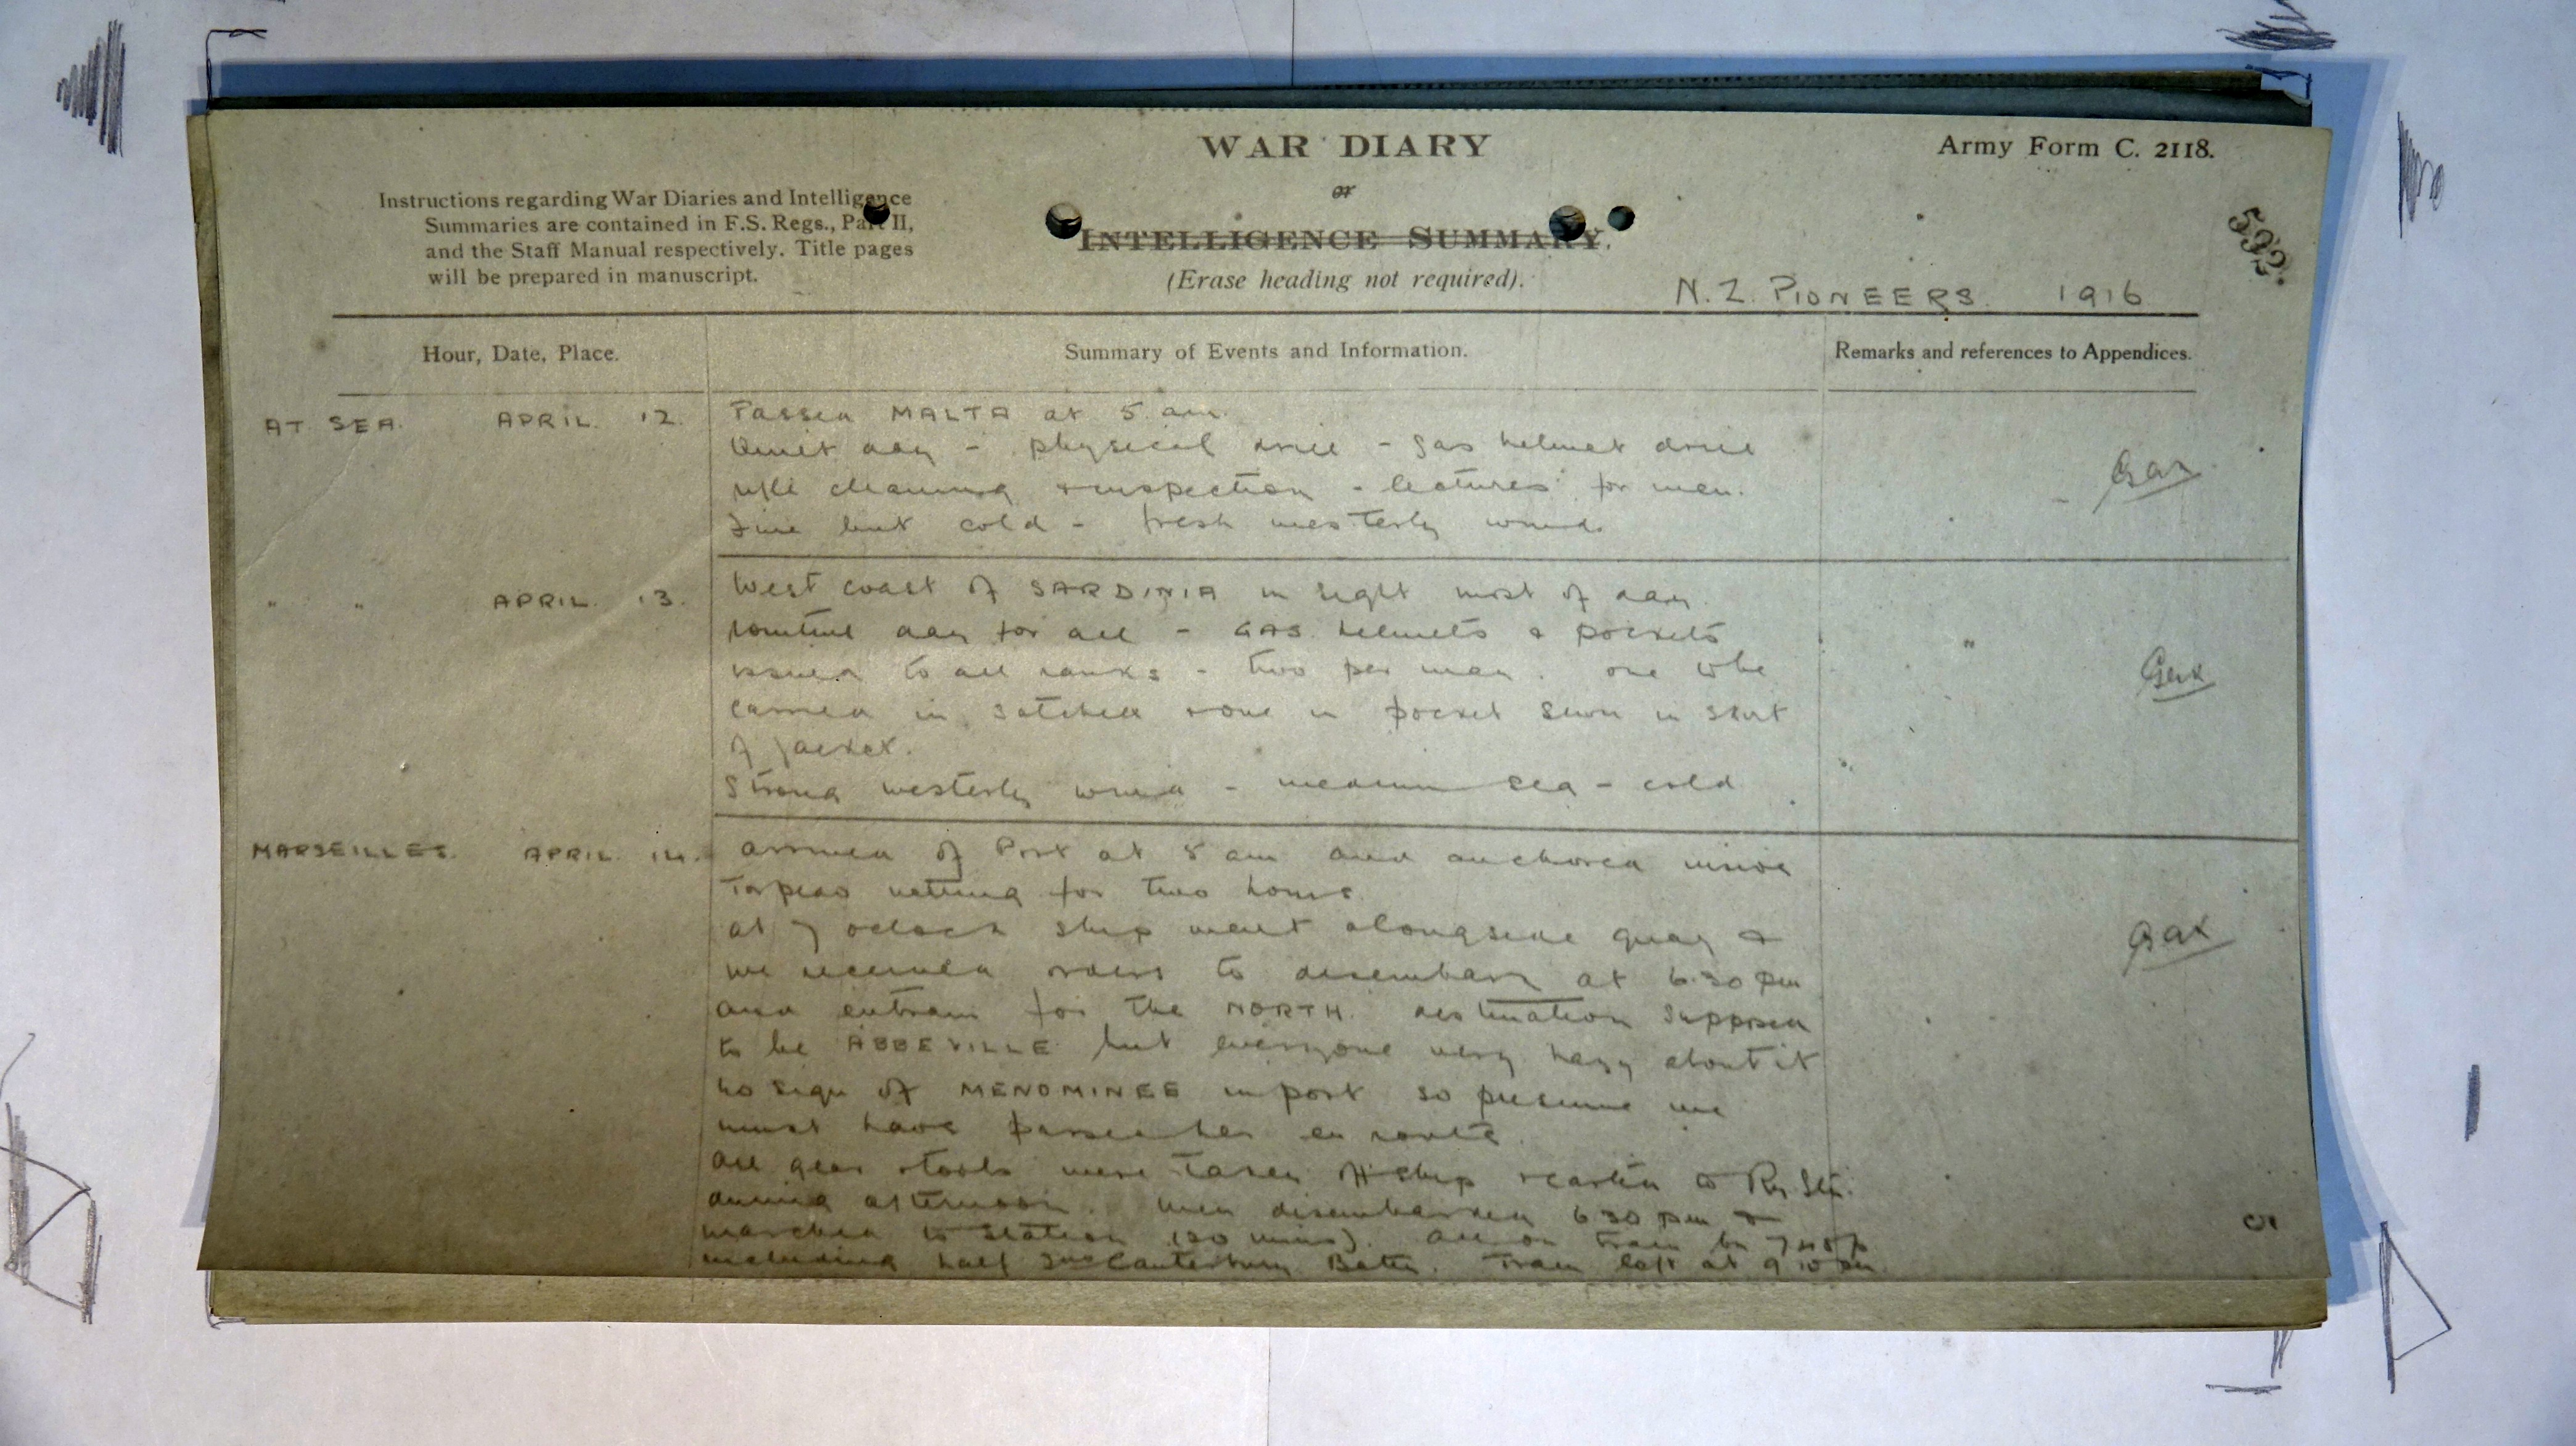 WAR DIARY
or
INTELLIGENCE SUMMARY.
(Erase heading not required).
Army Form C. 2118.
Instructions regarding War Diaries and Intelligence
Summaries are contained in F.S. Regs., Part II,
and the Staff Manual respectively. Title pages
will be prepared in manuscript.
532.
N.Z. PIONEERS. 1916
Hour, Date, Place.
Summary of Events and Information.
Remarks and references to Appendices.
AT SEA. APRIL 12.
Passed MALTA at 5 am.
Quiet day - physical drill - gas helmet drill
rifle cleaning & inspection - lectures for men.
Fine but cold - fresh westerly wind.
" " APRIL 13.
West coast of SARDINIA in sight most of day.
Routine day for all - GAS helmets & pockets
issued to all ranks - two per man. one to be
carried in satchel & one in pocket sewn in skirt
of jacket.
Strong westerly wind - medium sea - cold
MARSEILLES. APRIL 14.
Arrived off Port at 5 am and anchored inside
Torpedo netting for two hours.
at 7 oclock ship went alongside quay &
we received orders to disembark at 6.30 pm
and entrain for the NORTH. destination supposed
to be ABBEVILLE but everyone very hazy about it
No sign of MENOMINEE in port so presume we
must have passed her en route.
All gear & tools were taken off ship & carted to Ry Stn.
during afternoon. Men disembarked 6 30 pm &
marched to station (20 mins). All on train by 7 45 p
including half 2nd Canterbury Battn. Train left at 9 10 pm.
5